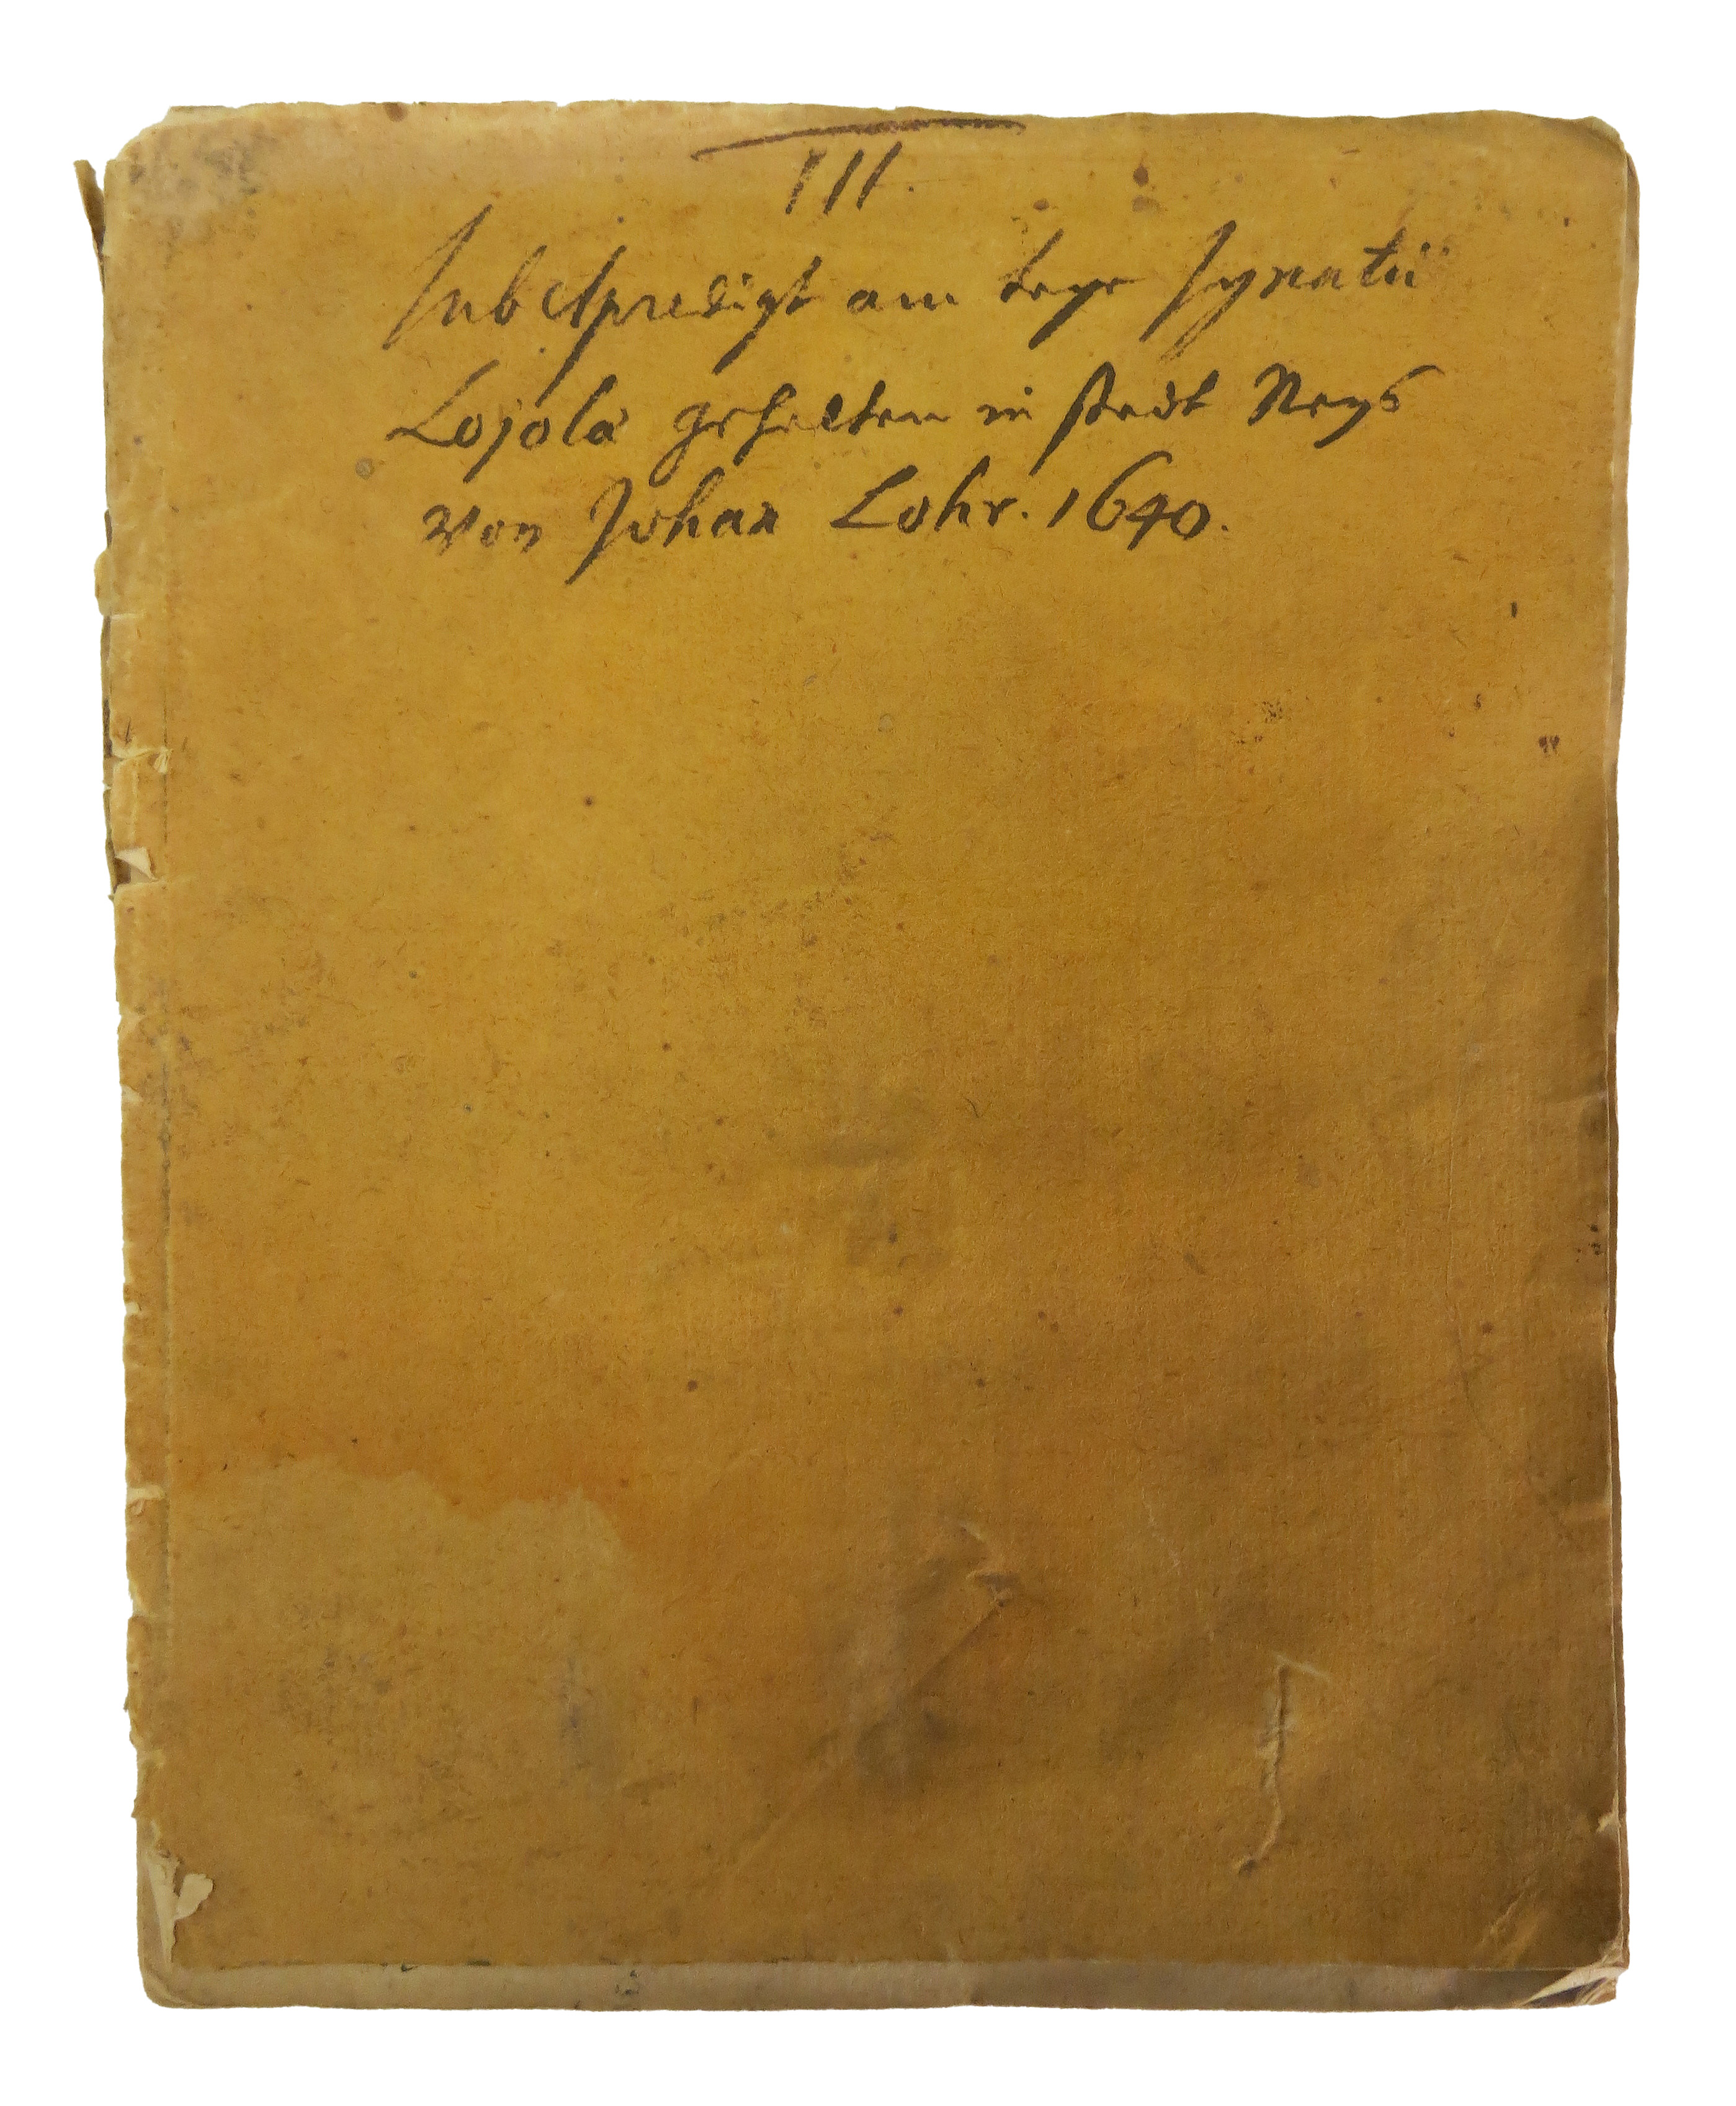 III.
Jubelpredigt am tage Ignatii
Lojola gehalten in stadt Neys
von Johan Lohr. 1640.